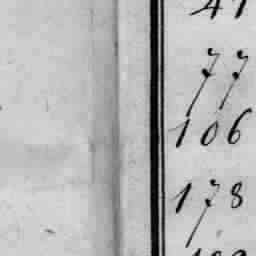 41
77
106
178